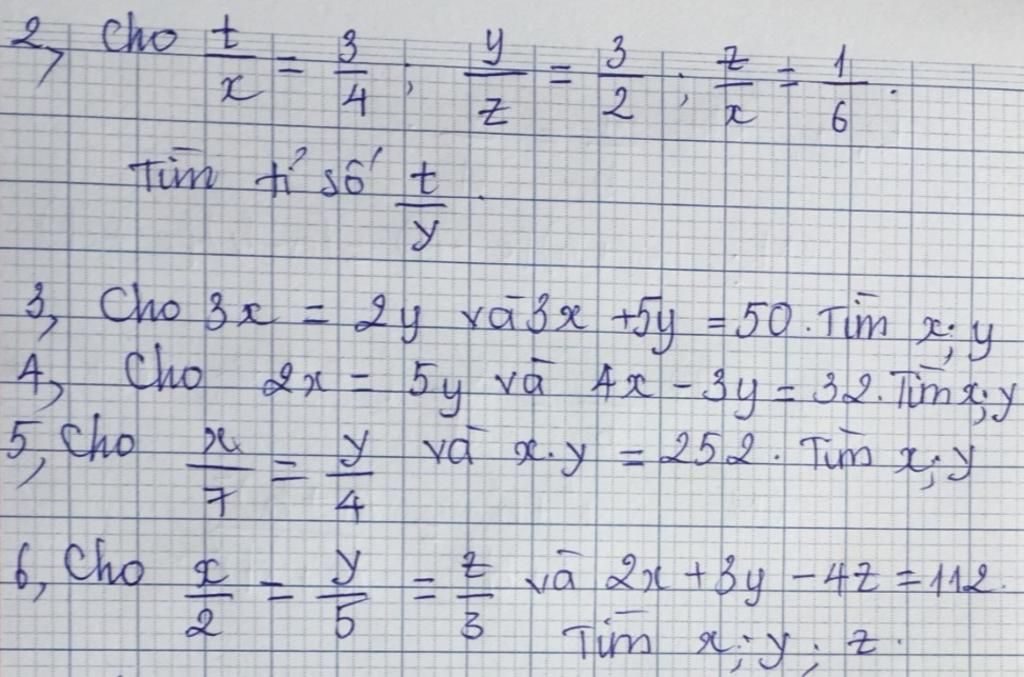 2, Cho t/x = 3/4 ; y/z = 3/2 ; z/x = 1/6 .
Tìm tỉ số t/y .
3, Cho 3x = 2y và 3x + 5y = 50 . Tìm x; y
4, Cho 2x = 5y và 4x - 3y = 32 . Tìm x; y
5, Cho x/7 = y/4 và x.y = 252 . Tìm x; y
6, Cho x/2 = y/5 = z/3 và 2x + 3y - 4z = 112 .
Tìm x; y; z .